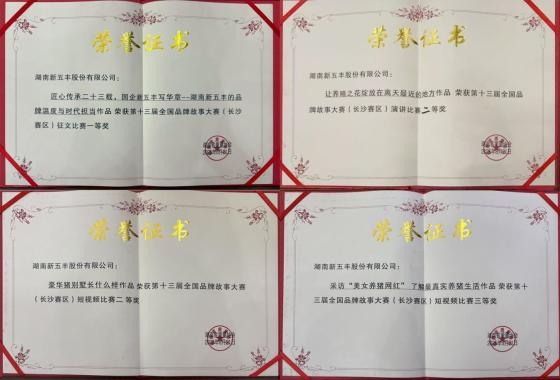 荣誉证书
湖南新五丰股份有限公司：
匠心传承二十三载，国企新五丰写华章——湖南新五丰的品
牌温度与时代担当作品 荣获第十三届全国品牌故事大赛（长沙
赛区）征文比赛一等奖
荣誉证书
湖南新五丰股份有限公司：
让养殖之花绽放在离天最近的地方作品 荣获第十三届全国品
牌故事大赛（长沙赛区）演讲比赛二等奖
荣誉证书
湖南新五丰股份有限公司：
豪华猪别墅长什么样作品 荣获第十三届全国品牌故事大赛
（长沙赛区）短视频比赛二等奖
荣誉证书
湖南新五丰股份有限公司：
采访“美女养猪网红”了解最真实养猪生活作品 荣获第十
三届全国品牌故事大赛（长沙赛区）短视频比赛三等奖